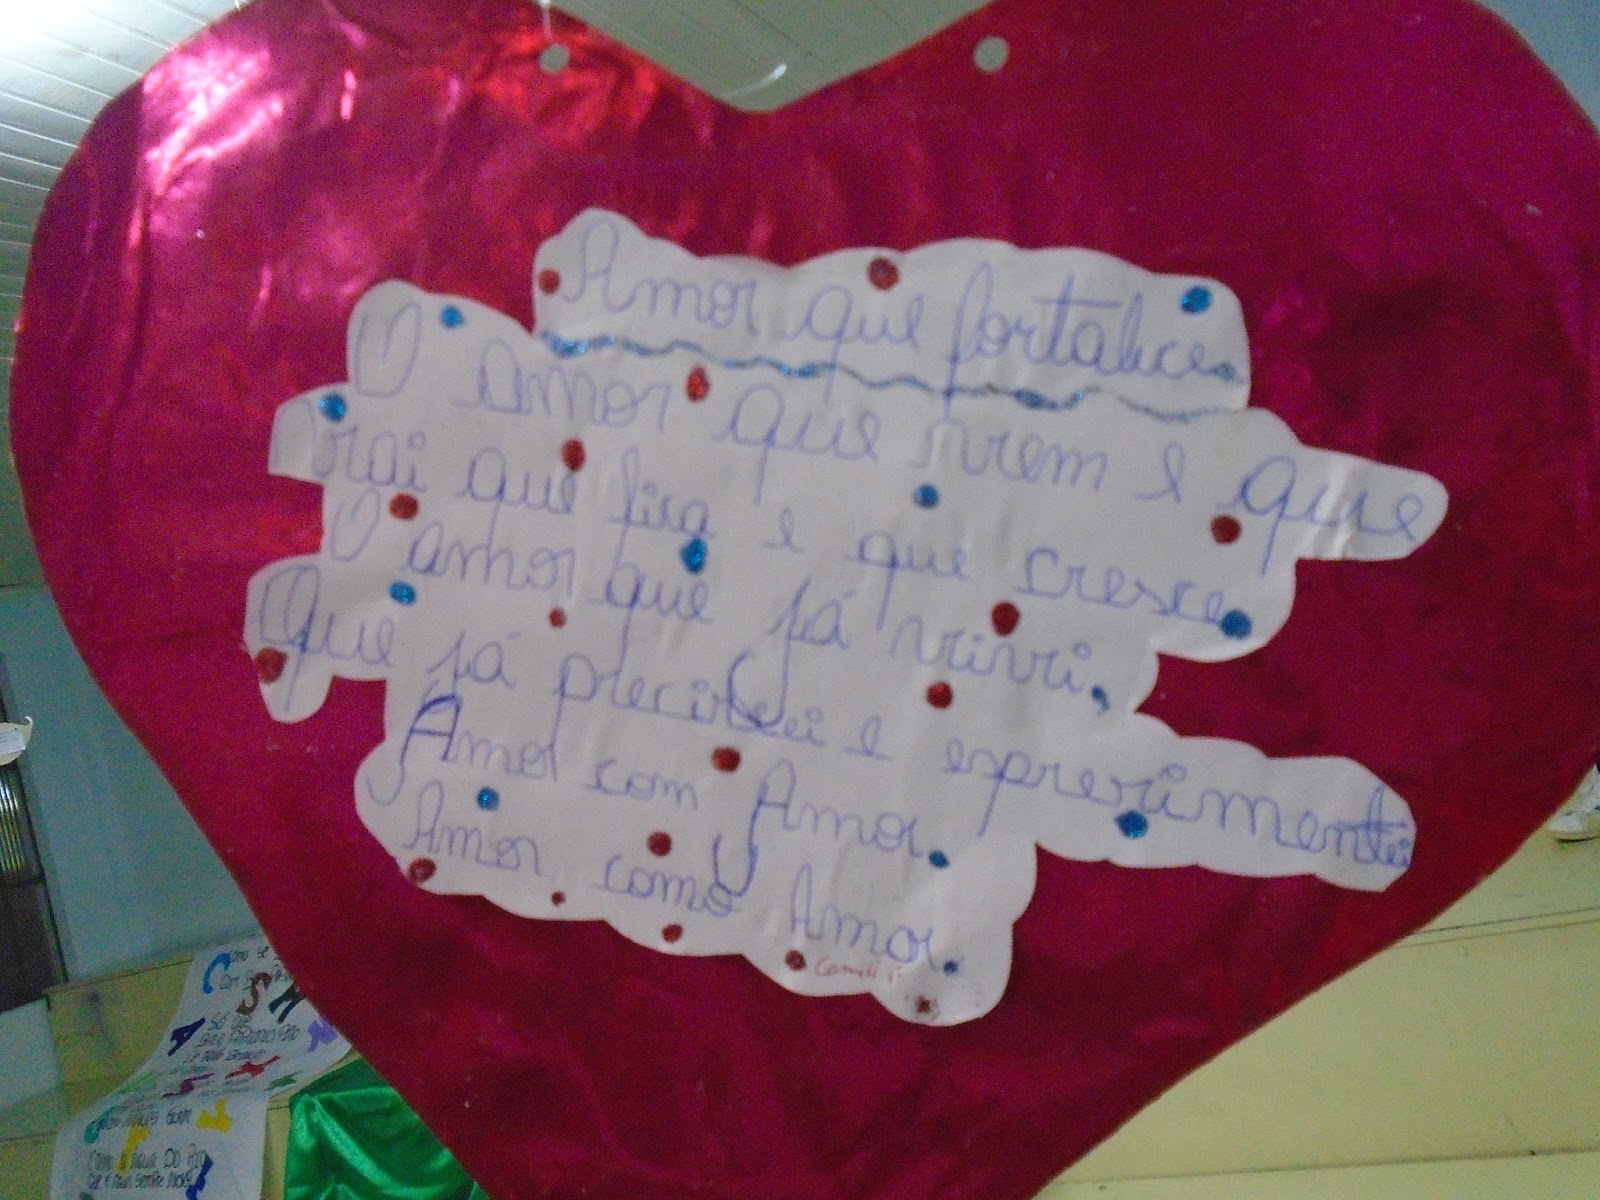 Amor que fortalece.
O Amor que vem e que
vai que fica e que cresce
O amor que já vivi,
Que já precisei e exprerimentei
Amor com Amor.
Amor como Amor.